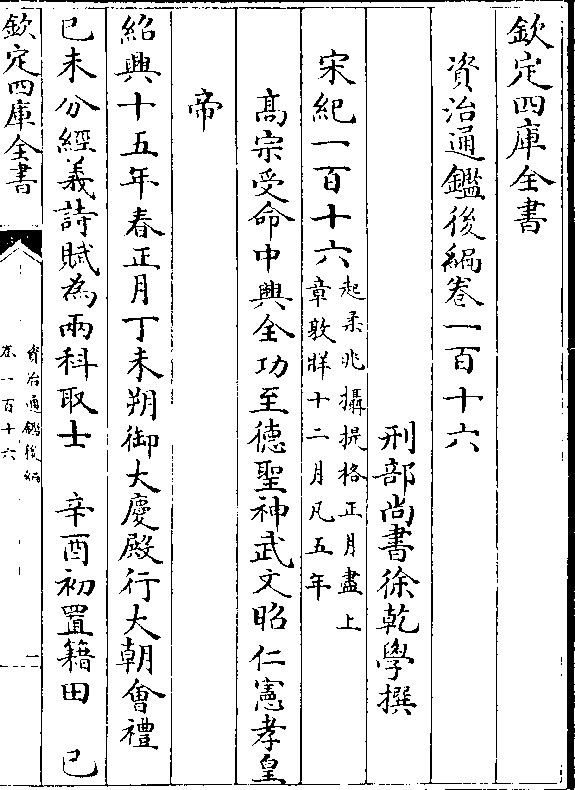 欽定四庫全書
資治通鑑後編卷一百十六
刑部尚書徐乾學撰
宋紀一百十六
起柔兆攝提格正月盡上
章敦牂十二月凡五年
髙宗受命中興全功至德聖神武文昭仁憲孝皇
帝
紹興十五年春正月丁未朔御大慶殿行大朝會禮
已未分經義詩賦為兩科取士 辛酉初置籍田 已
欽定四庫全書
資治通鑑後編
卷一百十六
一